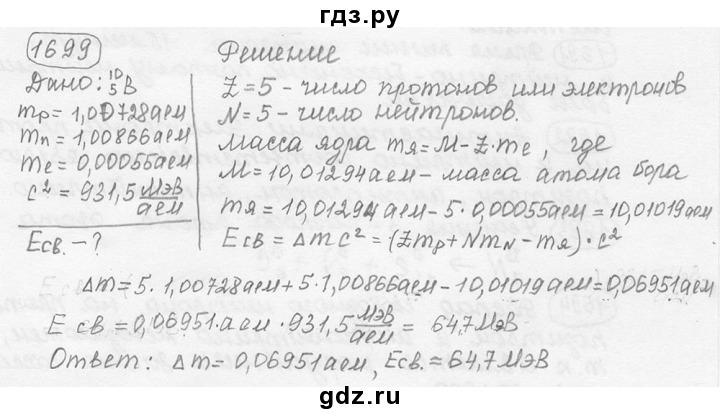 гдз.ру
1699
Решение
Дано: ¹⁰₅B
mp = 1,00728 аем
mn = 1,00866 аем
me = 0,00055 аем
c² = 931,5 МэВ/аем
Eсв. - ?
Z = 5 - число протонов или электронов
N = 5 - число нейтронов.
Масса ядра mя = M - Z · me, где
M = 10,01294 аем - масса атома бора
mя = 10,01294 аем - 5 · 0,00055 аем = 10,01019 аем
Eсв = Δmc² = (Zmp + NmN - mя) · c²
Δm = 5 · 1,00728 аем + 5 · 1,00866 аем - 10,01019 аем = 0,06951 аем
Eсв. = 0,06951 · аем · 931,5 МэВ/аем = 64,7 МэВ
Ответ: Δm = 0,06951 аем, Eсв. = 64,7 МэВ
gdz.ru